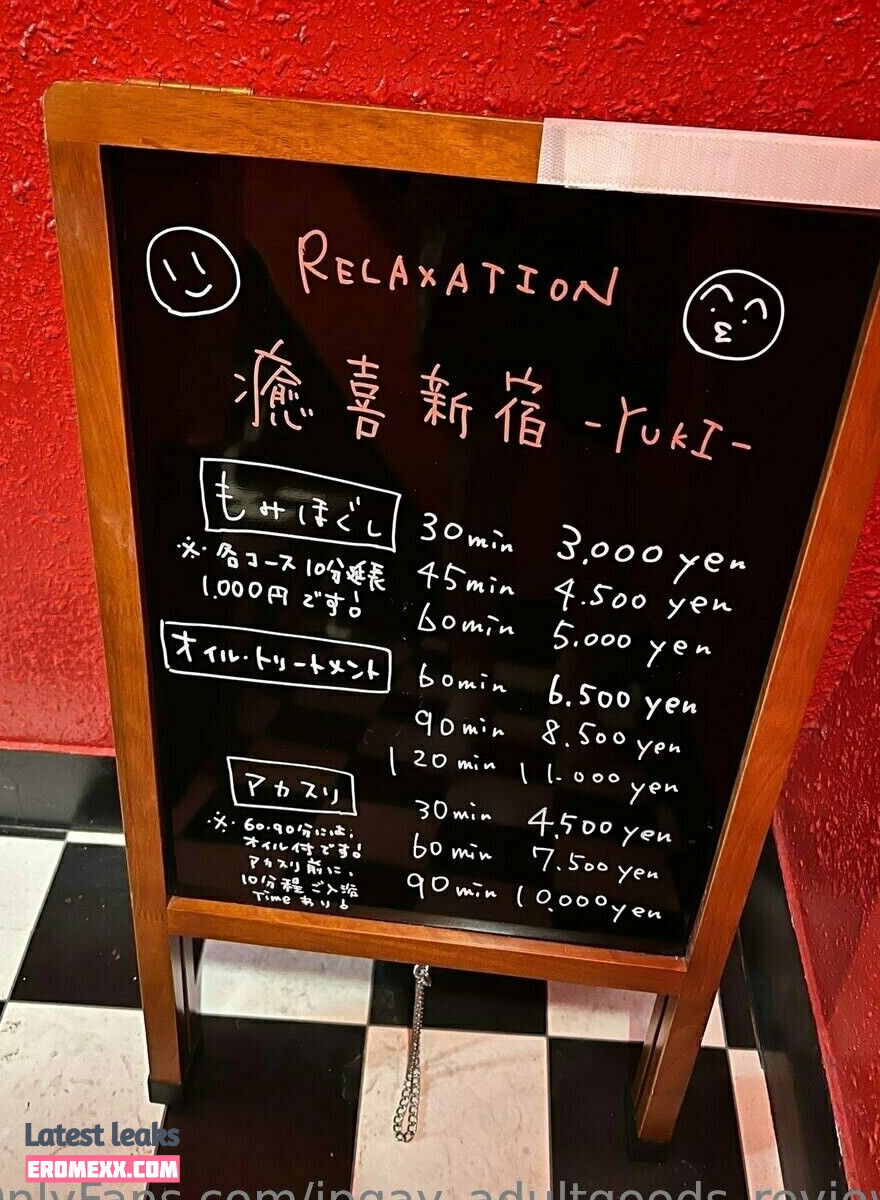 RELAXATION
癒喜新宿 -YUKI-
もみほぐし 30min 3,000 yen
※各コース10分延長 45min 4.500 yen
1.000円です! 60min 5.000 yen
オイル・トリートメント 60min 6.500 yen
90min 8.500 yen
120min 11.000 yen
アカスリ 30min 4,500 yen
※60.90分には、 60min 7.500 yen
オイル付です!
アカスリ前に、
10分程ご入浴 90min 10.000 yen
Timeあり!
Latest leaks
EROMEXX.COM
OnlyFans.com/jpgay_adultgoods_review